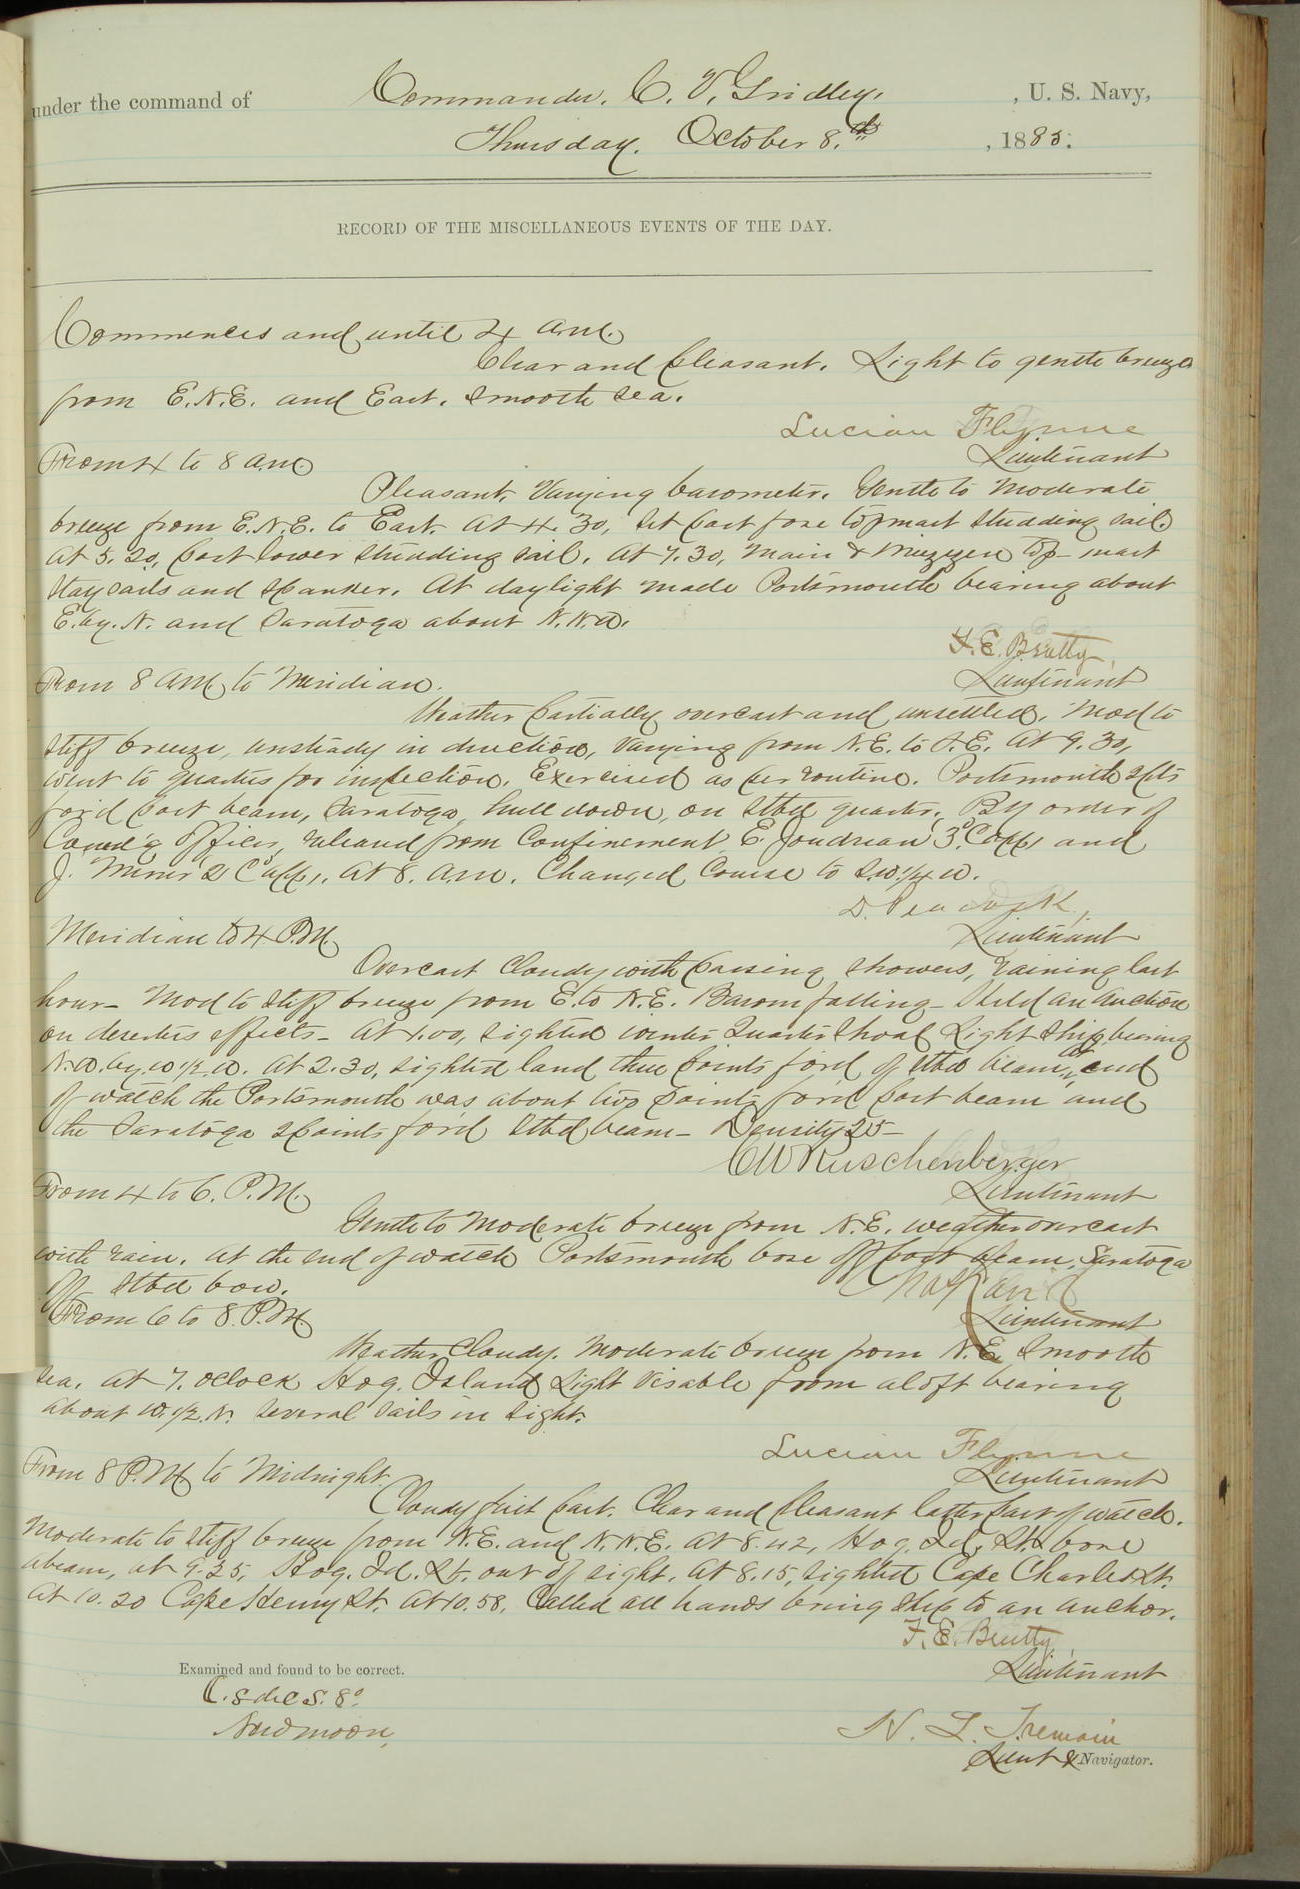 under the command of Commander. C. V. Gridley. , U. S. Navy,
Thursday. October 8.th , 1885.
RECORD OF THE MISCELLANEOUS EVENTS OF THE DAY.
Commences and until 4 a.m.
Clear and pleasant. Light to gentle breezes
from E.N.E. and East. Smooth sea.
Lucian Flynne
Lieutenant
From 4 to 8 a.m.
Pleasant. Varying barometer. Gentle to moderate
breeze from E.N.E. to East. At 4.30, set port fore topmast studding sail.
At 5.20, port lower studding sail. At 7.30, main & mizzen top-mast
stay sails and spanker. At daylight made Portsmouth bearing about
E. by. N. and Saratoga about N.N.W.
F. E. Beatty,
Lieutenant
From 8 a.m. to Meridian.
Weather partially overcast and unsettled. Mod to
stiff breeze, unsteady in direction, varying from N.E. to S.E. At 9.30,
went to quarters for inspection. Exercised as per routine. Portsmouth 2 pts
for'd port beam, Saratoga, hull down, on stbd quarter. By order of
Comd'g Officer, released from Confinement E. Joudrean 3d C. app, and
J. Miner 2d C app,. At 8. a.m. Changed Course to S.W.1/4 W.
D. Peacock,
Lieutenant
Meridian to 4 P.M.
Overcast cloudy with passing showers, raining last
hour- Mod to stiff breeze from E. to N.E. Barom falling- Held an auction
on deserters effects- At 1.00, sighted Winter Quarter Shoal Light Ship bearing
N.W. by. W 1/2 W. At 2.30, sighted land three points for'd of stbd beam, at end
of watch the Portsmouth was about two points for'd port beam and
the Saratoga 2 points for'd stbd beam- Density 25-
C W Ruschenberger
Lieutenant
From 4 to 6. P.M.
Gentle to moderate breeze from N.E. weather overcast
with rain. At the end of watch Portsmouth bore off port beam, Saratoga
off stbd bow.
Lieutenant
From 6 to 8. P.M.
Weather Cloudy. Moderate breeze from N.E. Smooth
sea. At 7. oclock Hog. Island Light visable from aloft bearing
about W. 1/2. N. Several sails in sight.
Lucian Flynne
Lieutenant
From 8 P.M. to Midnight.
Cloudy first part. Clear and pleasant latter part of watch.
Moderate to stiff breeze from N.E. and N.N.E. At 8.42, Hog. Id. Lt. bore
abeam, at 9.25, Hog. Id. Lt. out of sight. At 8.15, sighted Cape Charles Lt.
At 10.20 Cape Henry Lt. At 10.58, Called all hands bring ship to an anchor.
F. E. Beatty,
Lieutenant
Examined and found to be correct.
New moon,
H. L. Tremain
Lieut & Navigator.